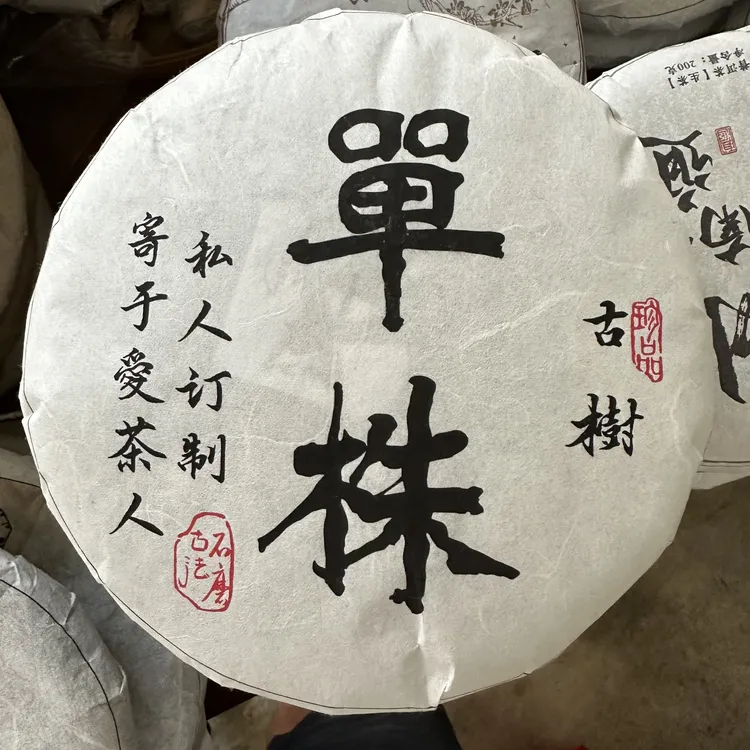 古樹
珍品
單株
私人订制
寄于愛茶人
石磨
古法
普洱茶【生茶】
净含量：200克